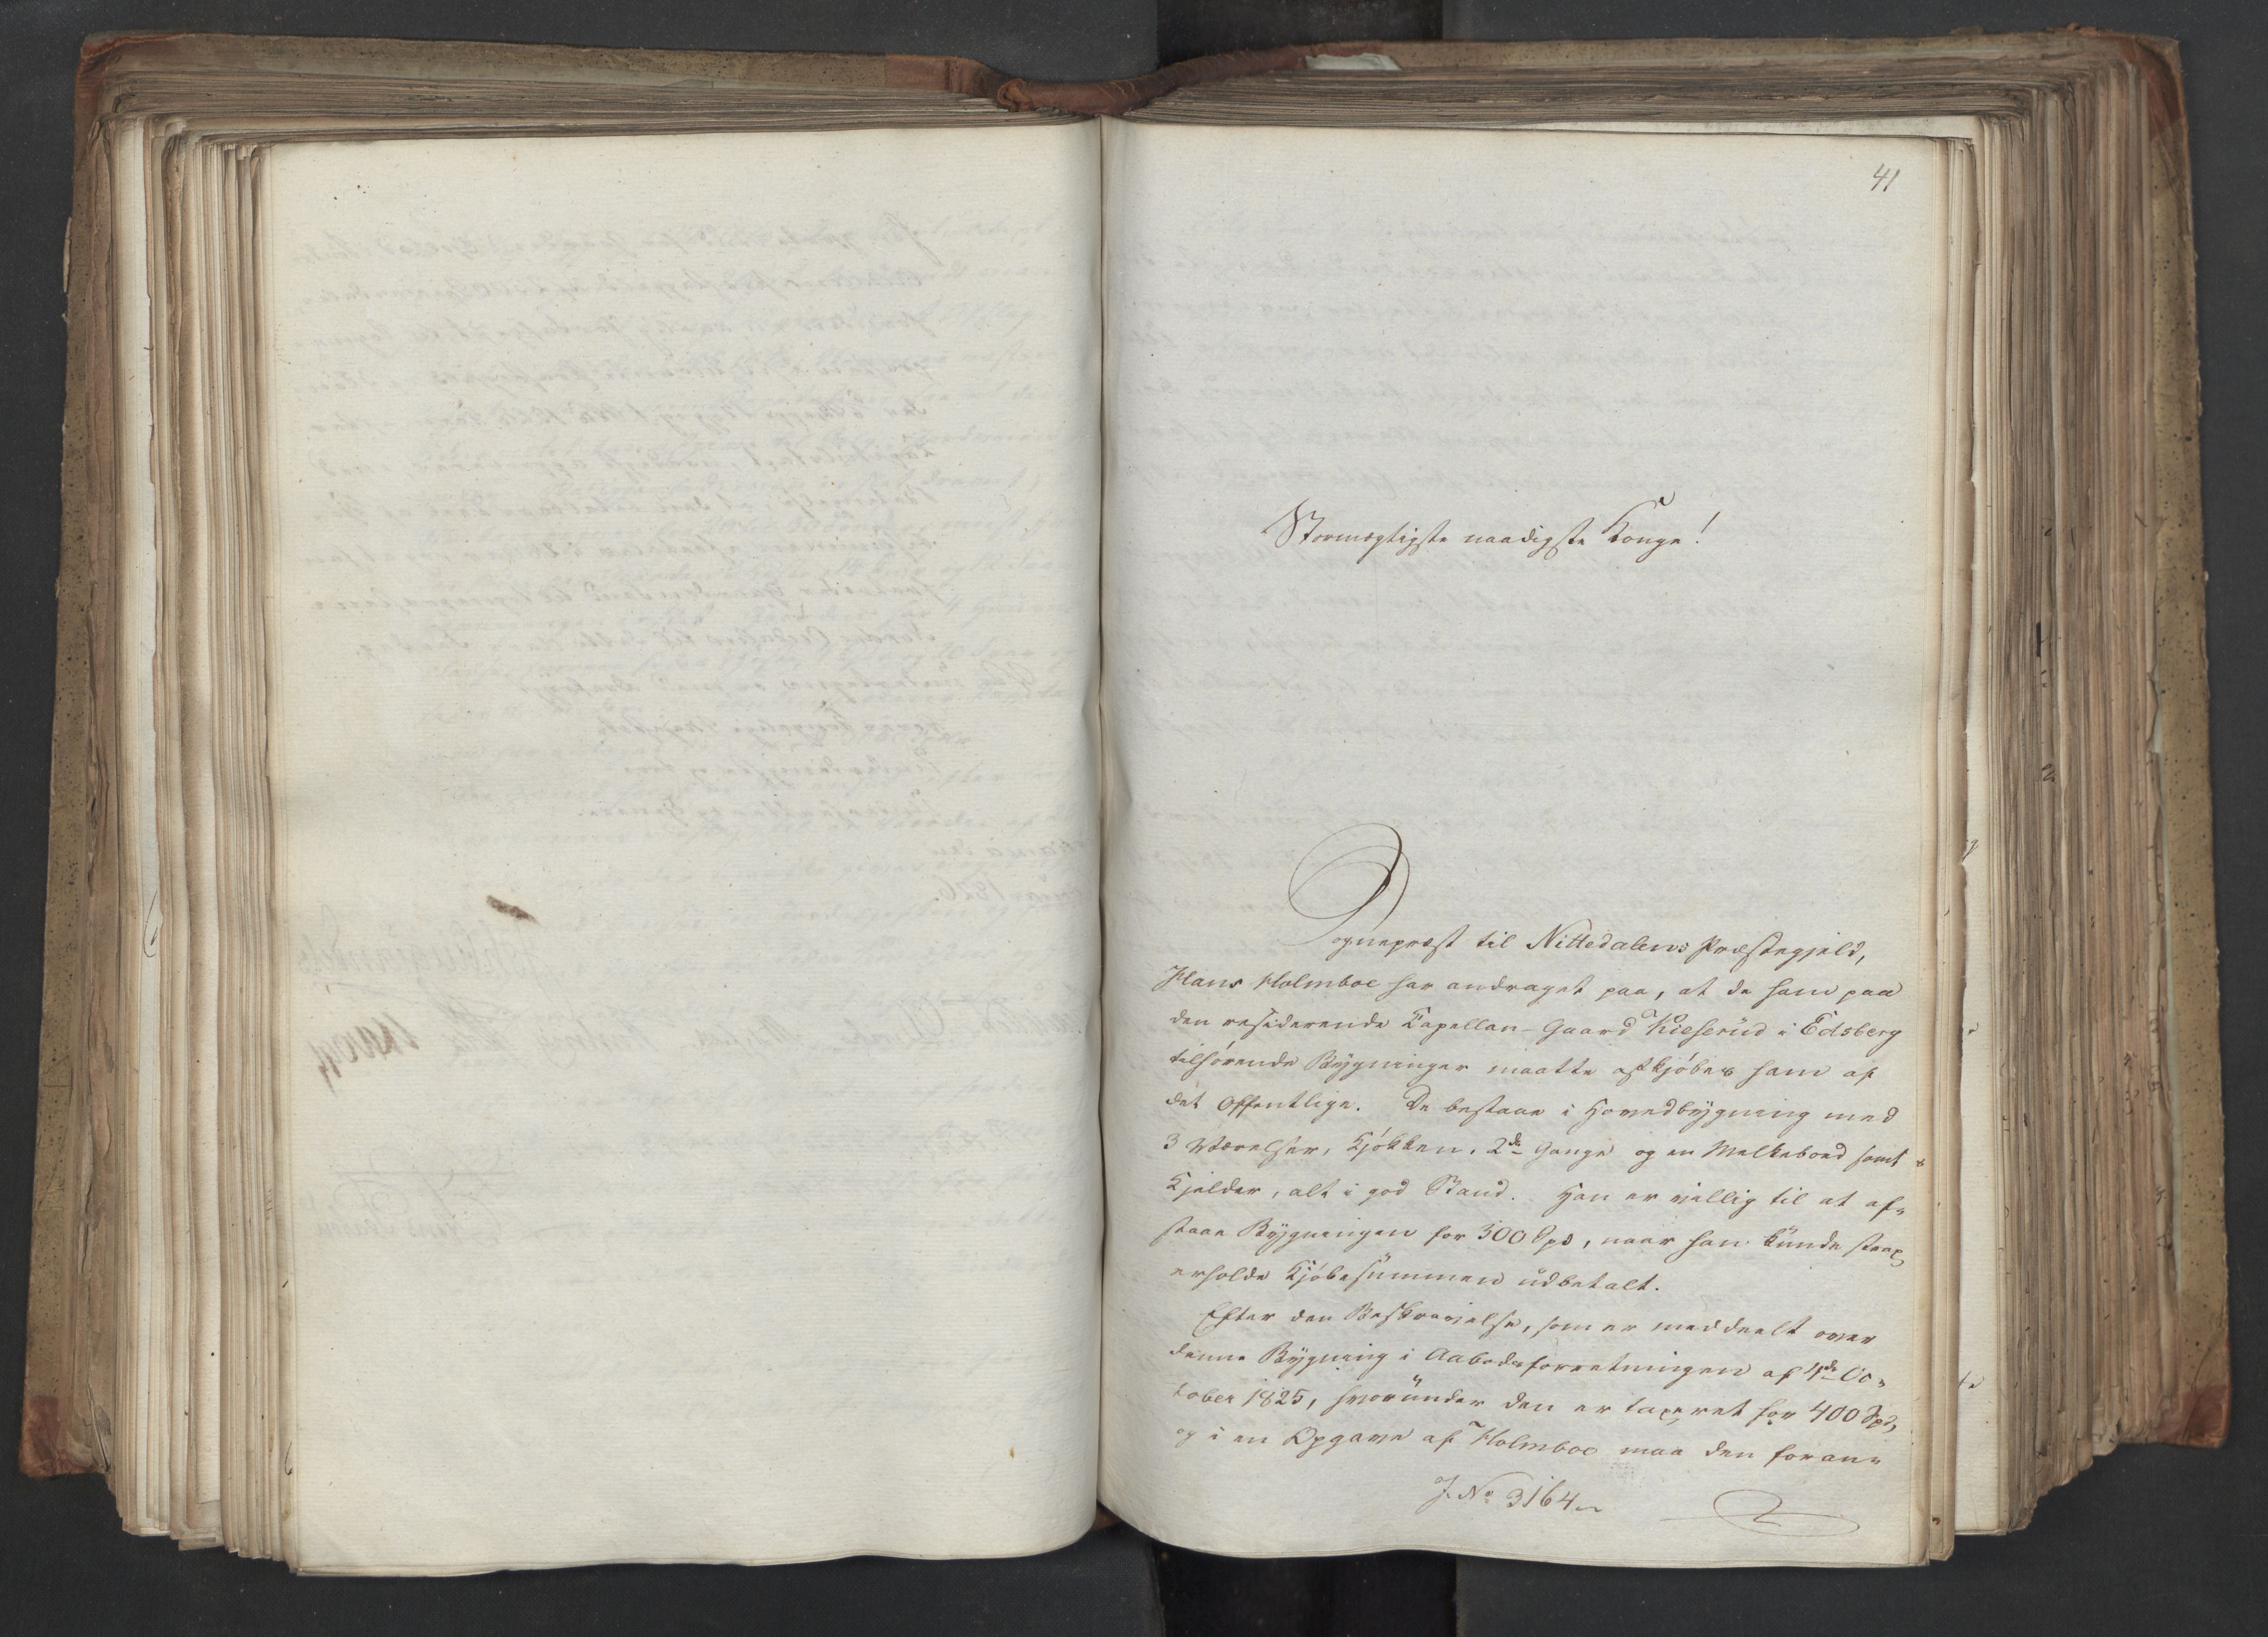 41
Stormægtigste naadigste Konge!
Sognepræst til Nittedalens Præstegjeld,
Hans Holmboe har andraget paa, at de ham paa
den residerende Capellan-Gaard Kieserüd i Edsberg
tilhørende Bygninger maatte afkjøbes ham af
det Offentlige. De bestaae i Hovedbygning med
3 Værelser, Kjøkken, 2de Gange og en Melkeboed samt
Kjelder, alt i god Stand. Han er villig til at af-
staae Bygningen for 300 Spd, naar han kunde strax
erholde Kjøbesummen udbetalt.
Efter den Beskrivelse, som er meddeelt over
denne Bygning i Aabodsforretningen af 4de Oc-
tober 1825, hvorunder den er taxeret for 400 Spd,
og i en Opgave af Holmboe maa den foran-
J. No 3164